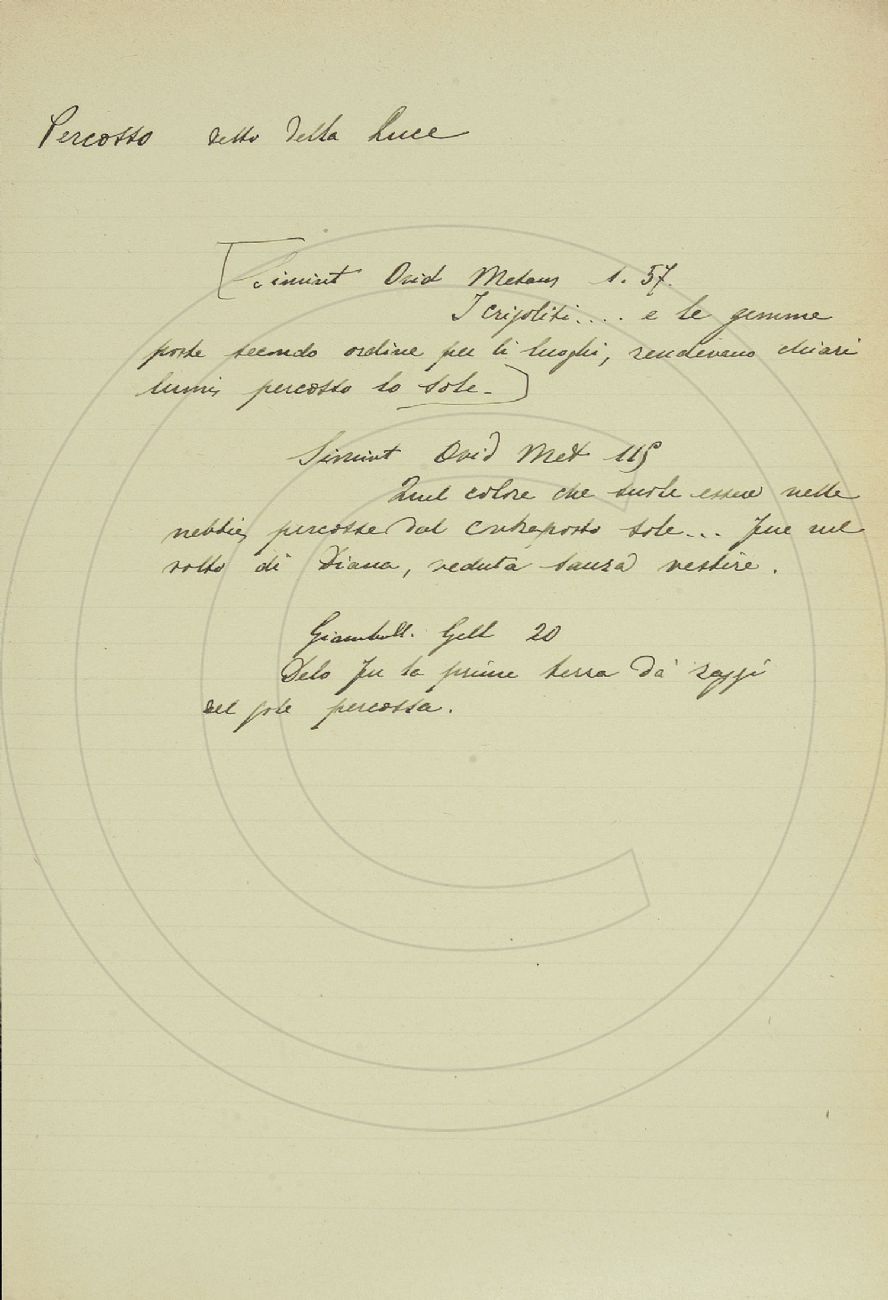 Percosso detto della Luce
[Simint Ovid Metam 1. 57.
I crisoliti.... e le gemme
poste secondo ordine per li luoghi, rendevano chiari
lumi, percosso lo sole.]
Simint Ovid Met 115
Quel colore che suole essere nelle
nebbie, percosse dal contrapposto sole... fue nel
volto di Diana, veduta sanza vestire.
Giambull. Gell 20
Delo fu la prima terra da' raggi
del sole percossa.